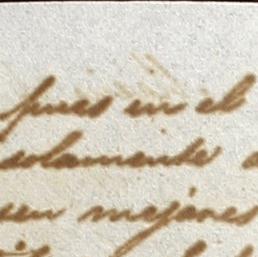 pues en el
solamente
sen mejores